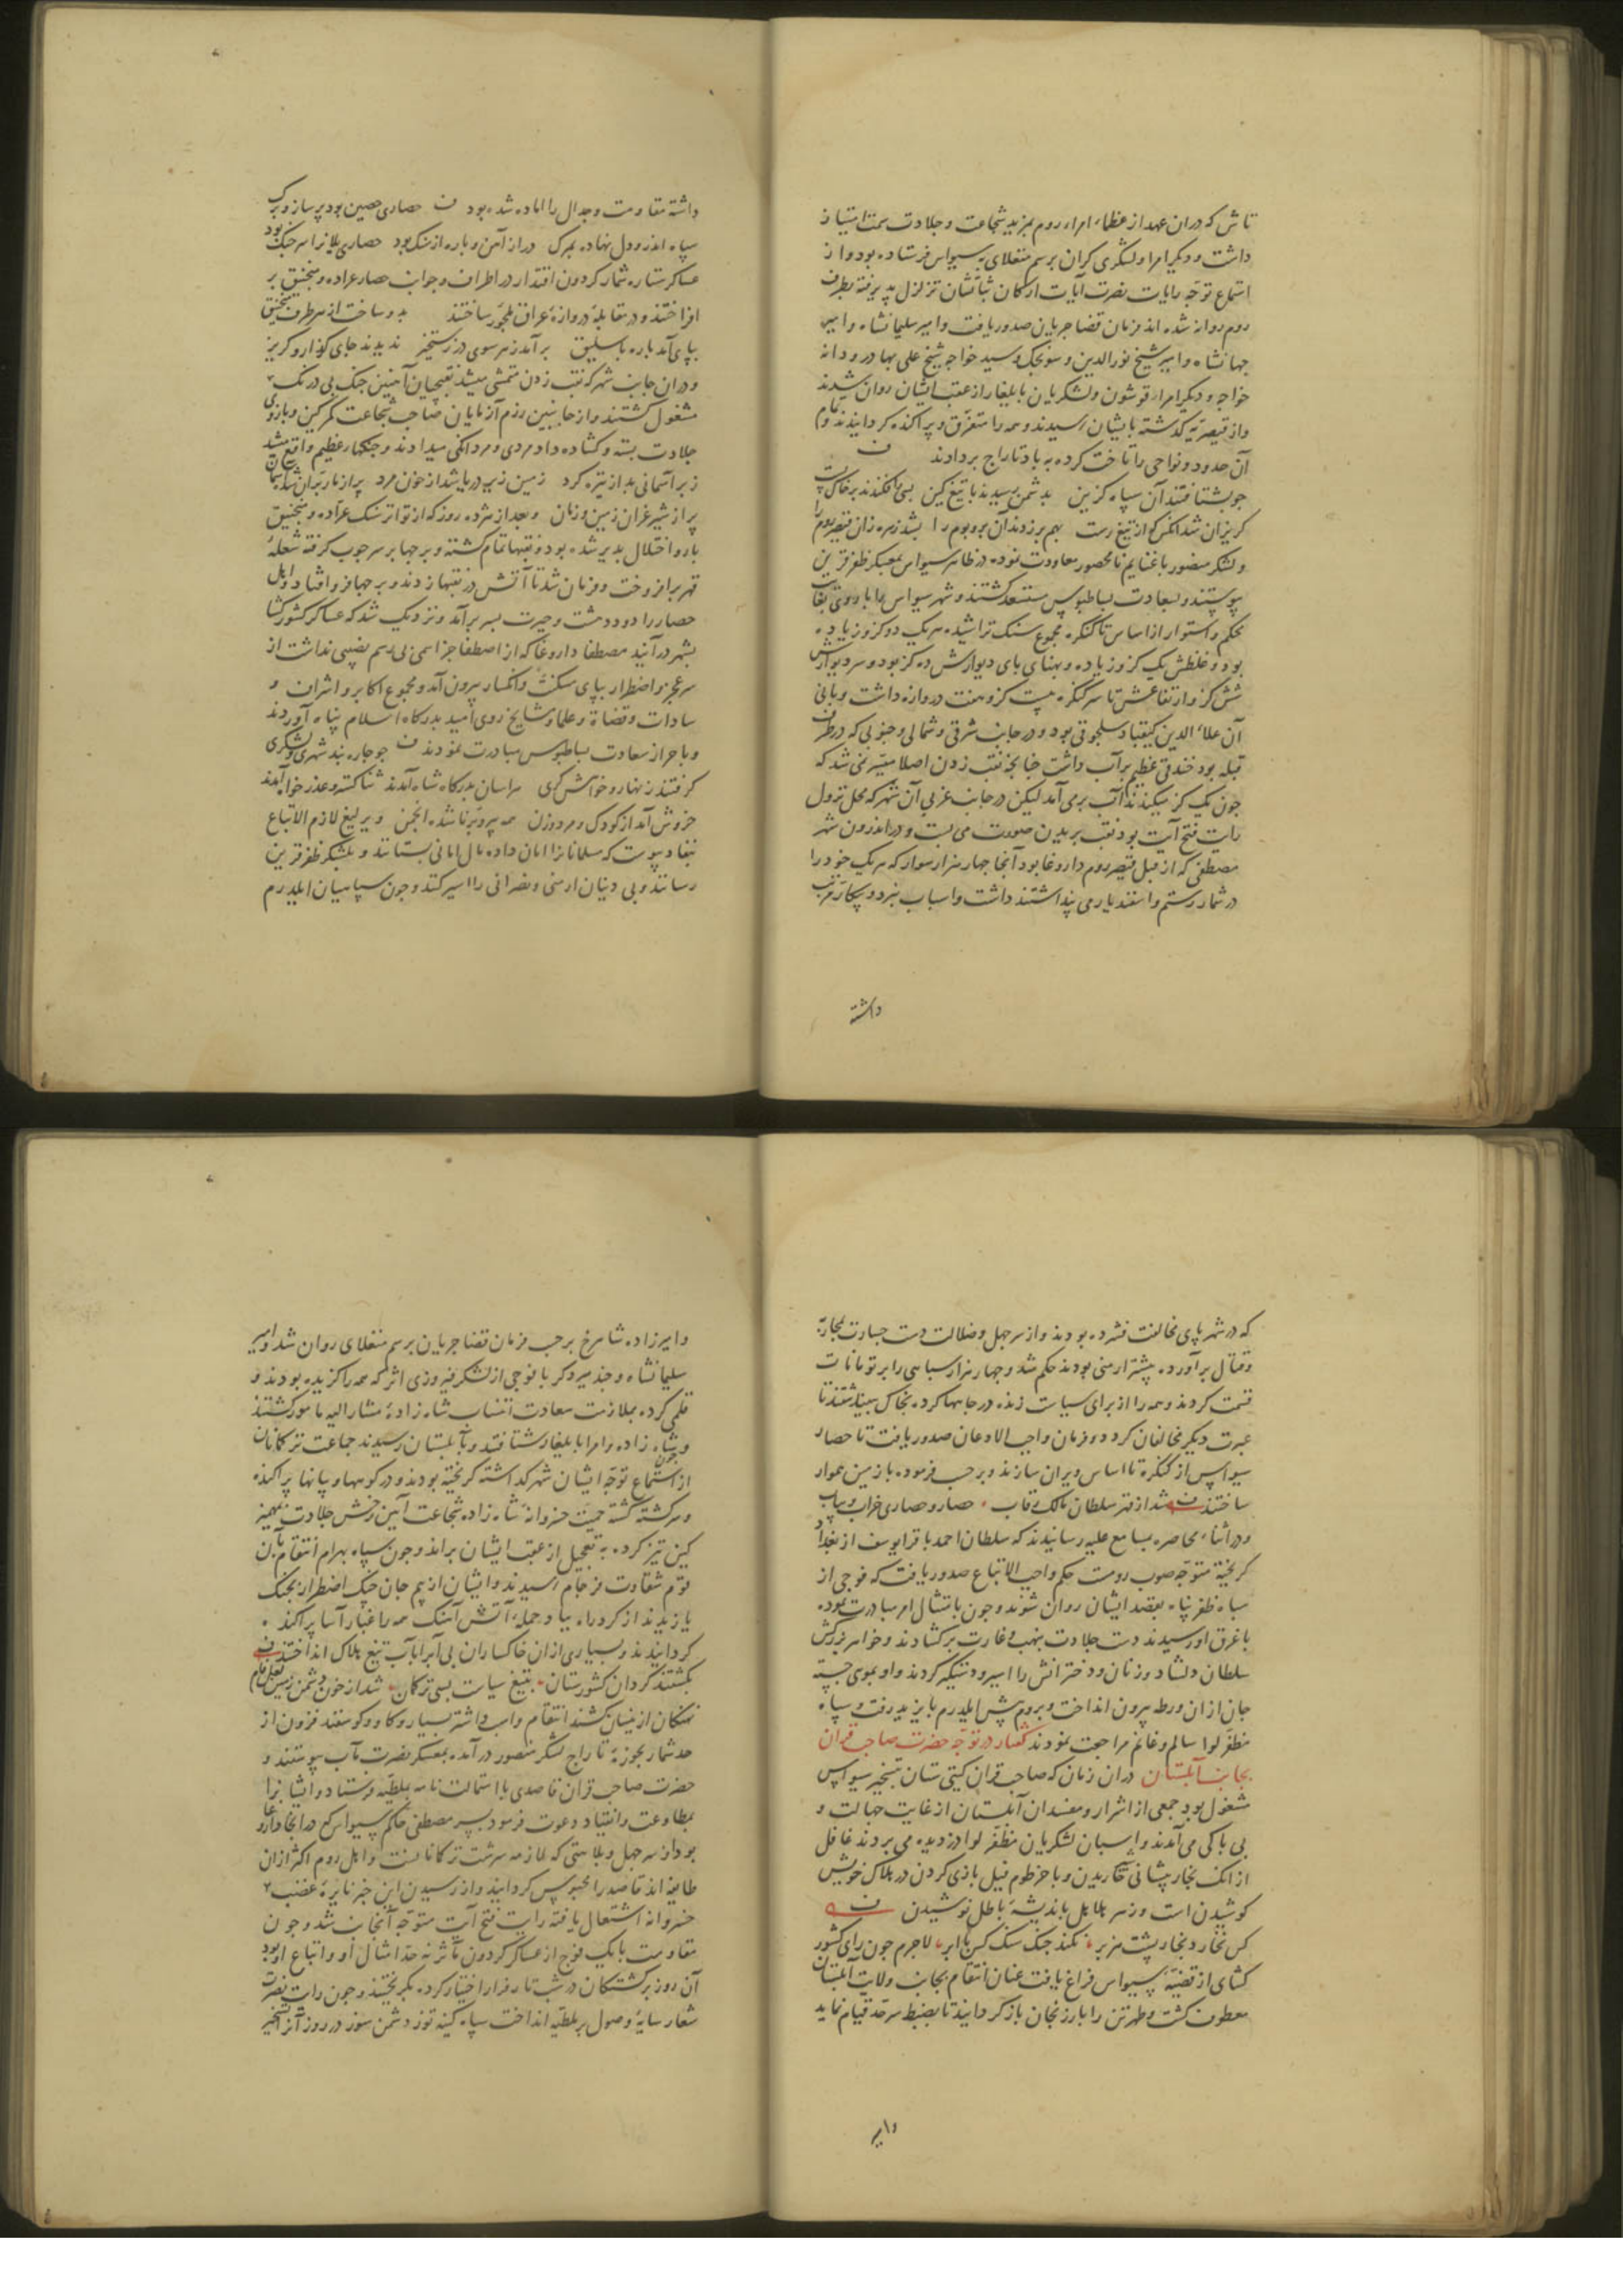 تاش که دران عهد از عظماء امراء روم بمزید شجاعت و جلادت سمت امتیاز
داشت و دیگر امرا و لشکری کران برسم منقلای بسیواس فرستاده بود و از
استماع توجه رایات نصرت آیات ارکان ثباتشان تزلزل پذیرفته بطرف
روم روانه شده اند فرمان قضا جریان صدور یافت و امیر سلیمانشاه و امیر
جهانشاه و امیر شیخ نورالدین و سونجک و سید خواجه شیخ علی بهادر و دانه
خواجه و دیگر امراء قوشون و لشکریان بایلغار از عقب ایشان روان شدند
و از قیصریه گذشته بایشان رسیدند و همه را متفرق و پراکنده کردانیدند و
آن حدود و نواحی را تاخت کرده به باد تاراج بر دادند
جو بشتافتند آن سپاه کزین بدشمن رسیدند با تیغ کین بسی افکندند بر خاک
کریزان شد انکس کز تیغ رست بهم بر زدند آن بر و بوم را بشد زهره زان قیصر روم را
و لشکر منصور با غنایم نامحصور معاودت نموده در ظاهر سیواس بمعسکر ظفر قرین
پیوستند و بسعادت بساط بوس مستسعد کشتند و شهر سیواس را باروی بغایت
محکم و استوار از اساس تا کنکره مجموع سنک تراشیده هر یک دو کز و زیاده
بود و غلظش یک کز و زیاده و پهنای بای دیوارش ده کز بود و سر دیوارش
شش کز و ارتفاعش تا سر کنکره بیست کز و هفت دروازه داشت و بانی
آن علاء الدین کیقباد سلجوقی بود و در جانب شرقی و شمالی و جنوبی که در طرف
قبله بود خندقی عظیم پر آب داشت چنانجه نقب زدن اصلا میسر نمی شد که
جون یک کز میکندند آب برمی آمد لیکن در جانب غربی آن شهر که محل نزول
رایت فتح آیت بود نقب بریدن صورت می بست و در اندرون شهر
مصطفی که از قبل قیصر روم داروغا بود آنجا جهار هزار سوار که هر یک خود را
در شمار رستم و اسفندیار می پنداشتند داشت و اسباب نبرد و پیکار مرتب
داشته
داشته مقاومت و جدال را آماده شده بود حصاری حصین بود پر ساز و برک
سپاه اندرو دل نهاده بمرک در از آهن و باره از سنک بود حصاری یلانرا سر جنک بود
عساکر ستاره شمار کردون اقتدار در اطراف و جوانب حصار عراده و منجنیق بر
افراختند و در مقابله دروازه عراق ملجور ساختند بدو ساخت از هر طرف منجنیق
بپای آمد باره باسلیق برآمد ز هر سوی در رستخیز ندیدند جای کذار و کریز
و دران جانب شهر که نقب زدن متمشی میشد نقبجیان آهنین جنک بی درنک
مشغول کشتند و از جانبین رزم آزمایان صاحب شجاعت کمر کین و بازوی
جلادت بسته و کشاده داد مردی و مردانکی میدادند و جنکهاء عظیم واقع میشد
زبر آسمانی بد از تیره کرد زمین زیر دریا شد از خون مرد پر از مار پران شد آسمان
پر از شیر غران زمین و زمان و بعد از هژده روز که از تواتر سنک عراده و منجنیق
بارو اختلال پذیر شده بود و نقبها تمام کشته و برجها بر سر جوب کرفته شعله
قهر بر افروخت و فرمان شد تا آتش در نقبها زدند و برجها فرو افتاد و اهل
حصار را دود دهشت و حیرت بسر برآمد و نزدیک شد که عساکر کشورکشا
بشهر درآیند مصطفا داروغا که از اصطفا جز اسمی بی رسم نصیبی نداشت از
سر عجز و اضطرار بپای مسکنت و انکسار بیرون آمد و مجموع اکابر و اشراف و
سادات و قضاة و علما و مشایخ روی امید بدرکاه اسلام پناه آوردند
و باحراز سعادت بساط بوس مبادرت نمودند جو جاره بد شهری و لشکری
کرفتند زنهار و خواهش کری هراسان بدرکاه شاه آمدند ثنا کستر و عذر خواه آمدند
خروش آمد از کودک و مرد و زن همه پیر و برنا شده انجمن و یرلیغ لازم الاتباع
بنفاذ پیوست که مسلمانانرا امان داده مال امانی بستانند و بلشکر ظفر قرین
رسانند و بی دینان ارمنی و نصرانی را اسیر کنند و جون سپاهیان ایلدرم
که در شهر پای مخالفت فشرده بودند و از سر جهل و ضلالت دست جسارت بمحاربه
و قتال برآورده بیشتر ارمنی بودند حکم شد و جهار هزار سپاهی را بر تومانات
قسمت کردند و همه را از برای سیاست زنده در جاهها کرده بخاک بینباشتند تا
عبرت دیکر مخالفان کردد و فرمان واجب الاذعان صدور یافت تا حصار
سیواس از کنکره تا اساس ویران سازند و بر حسب فرموده با زمین هموار
ساختند شد از قهر سلطان مالک رقاب حصار و حصاری خراب و یباب
و در اثناء محاصره بمسامع علیه رسانیدند که سلطان احمد با قرایوسف از بغداد
کریخته متوجه صوب روست حکم واجب الاتباع صدور یافت که فوجی از
سپاه ظفر پناه بقصد ایشان روان شوند و جون بامتثال امر مبادرت نموده
باغرق او رسیدند دست جلادت بنهب و غارت برکشادند و خواهر بزرکش
سلطان دلشاد و زنان و دخترانش را اسیر و دستکیر کردند و او بموی جسته
جان ازان ورطه بیرون انداخت و بروم پیش ایلدرم بایزید رفت و سپاه
مظفر لوا سالم و غانم مراجعت نمودند گفتار در توجه حضرت صاحب قران
بجانب آبلستان دران زمان که صاحب قران کیتی ستان بتسخیر سیواس
مشغول بود جمعی از اشرار و مفسدان آبلستان از غایت جهالت و
بی باکی می آمدند و اسبان لشکریان مظفر لوا دزدیده می بردند غافل
از آنک بخار پیشانی خاریدن و با خرطوم فیل بازی کردن در هلاک خویش
کوشیدن است و زهر هلاهل باندیشه باطل نوشیدن
کس نخارد بخار پشت هزبر نکند جنک سنک کس با ابر لاجرم جون رای کشور
کشای از قضیه سیواس فراغ یافت عنان انتقام بجانب ولایت آبلستان
معطوف کشت و طهرتن را بارزنجان باز کردانید تا بضبط سرحد قیام نماید
و امیر
و امیرزاده شاهرخ بر حسب فرمان قضا جریان برسم منقلای روان شد و امیر
سلیمانشاه و جند میر دکر با فوجی از لشکر فیروزی اثر که همه را کزیده بودند و
قلمی کرده بملازمت سعادت انتساب شاه زاده مشار الیه مامور کشتند
و شاه زاده و امرا بایلغار شتافتند و بآبلستان رسیدند جماعت ترکمانان
از استماع توجه ایشان شهر کذاشته کریخته بودند و در کوهها و بیابانها پراکنده
و سرکشته کشته حمیت خسروانه شاه زاده شجاعت آیین رخش جلادت بمهمیز
کین تیز کرده به تعجیل از عقب ایشان براند و جون سپاه بهرام انتقام بآن
قوم شقاوت فرجام رسیدند و ایشان از بیم جان جنک اضطرار بجنک
یازیدند از کرد راه بباد حمله آتش آهنک همه را غبار آسا پراکنده
کردانیدند و بسیاری ازان خاکساران بی آبرا بآب تیغ هلاک انداختند
بکشتند کردان کشورستان بتیغ سیاست بسی ترکمان شد از خون دشمن زمین لعل فام
نهنکان از نیسان کشند انتقام و اسب و استر بسیار و کاو و کوسفند فزون از
حد شمار بحوزه تاراج لشکر منصور درآمده بمعسکر نصرت مآب پیوستند و
حضرت صاحب قران قاصدی با استمالت نامه بملطیه فرستاد و ایشانرا
بمطاوعت و انقیاد دعوت فرمود پسر مصطفی حاکم سیواس که در آنجا داروغا
بود از سر جهل و بلاهتی که لازمه سرشت ترکمانانست و اهل روم اکثر ازان
طایفه اند قاصد را محبوس کردانید و از رسیدن این خبر نایره غضب
خسروانه اشتعال یافته رایت فتح آیت متوجه آنجانب شد و جون
مقاومت با یک فوج از عساکر کردون مآثر نه حد امثال او و اتباع او بود
آن روز برکشتکان در شب تار فرار اختیار کرده بکریختند و جون رایت نصرت
شعار سایه وصول بر ملطیه انداخت سپاه کینه توز دشمن سوز در روز آنرا تسخیر